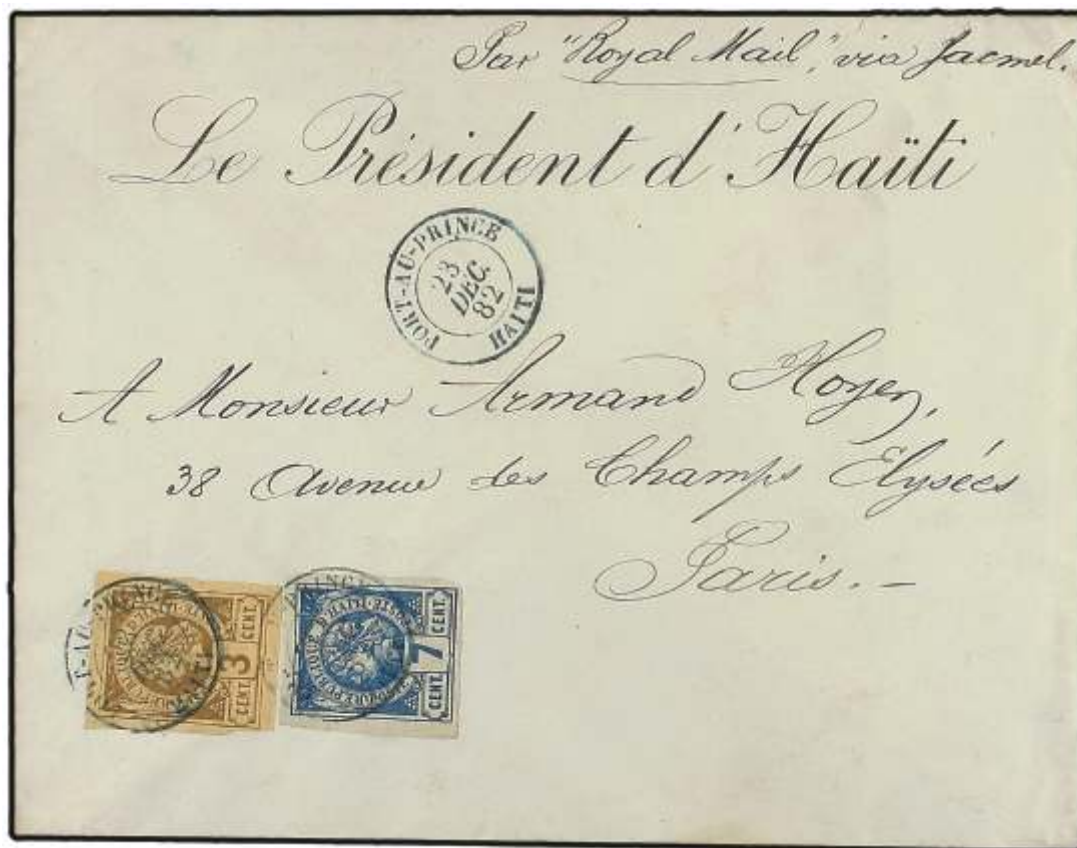 Par "Royal Mail", via Jacmel.
Le Président d'Haïti
PORT-AU-PRINCE
23
DÉC.
82
HAITI
A Monsieur Armand
38 Avenue des Champs Elysées
Paris.-
CENT. 3 CENT.
CENT. 7 CENT.
RÉPUBLIQUE D'HAITI